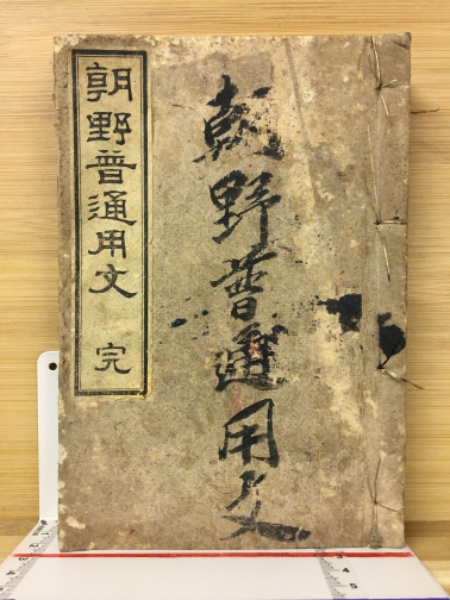 朝野普通用文 完
朝野普通用文